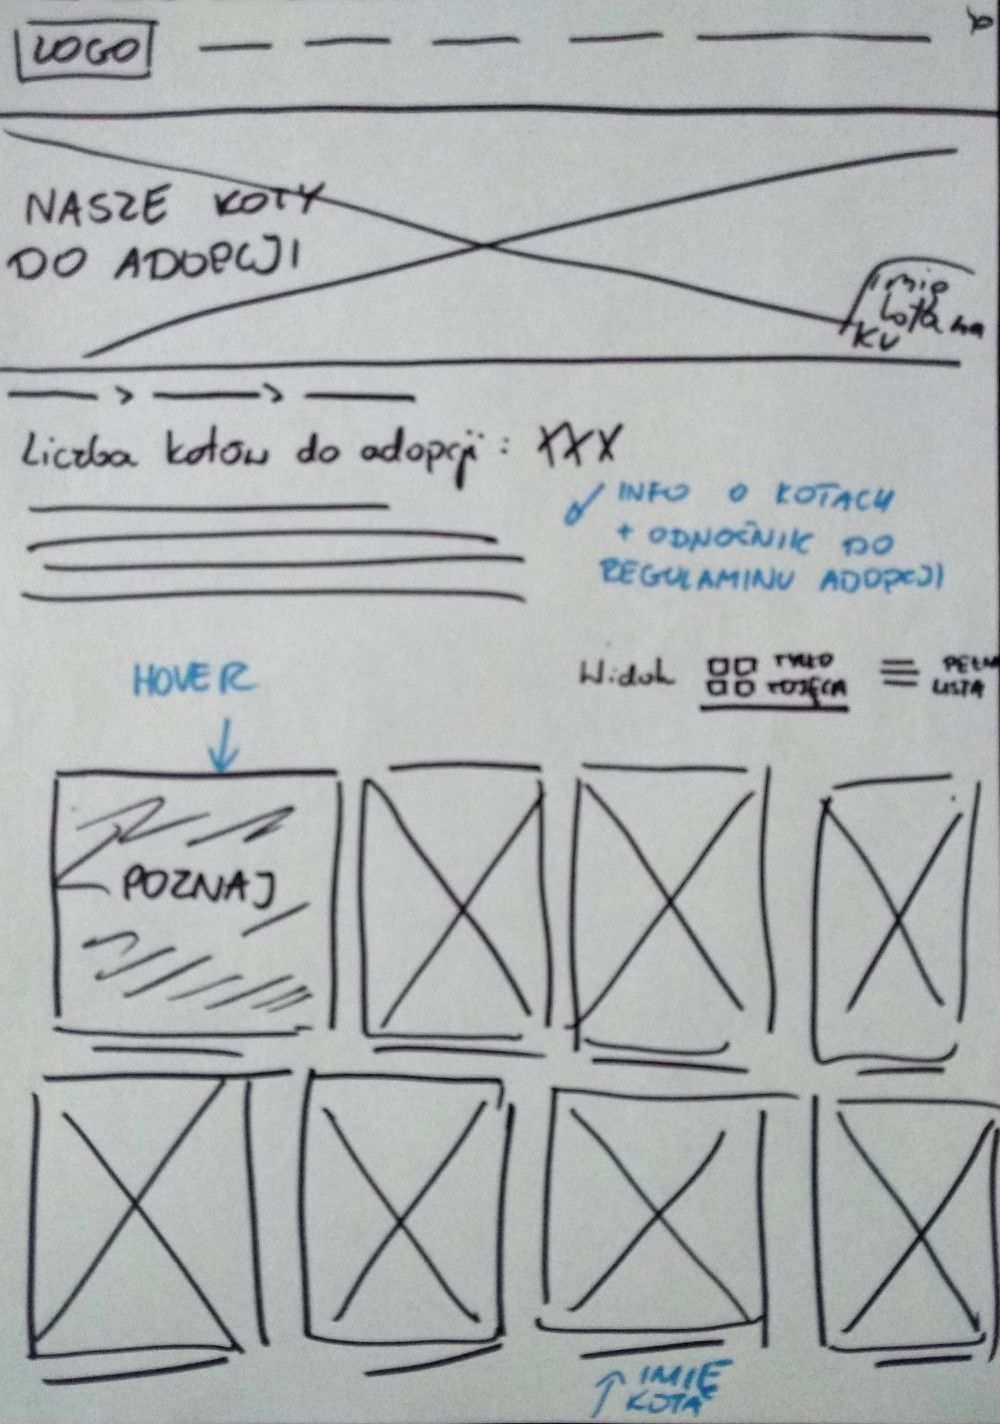 LOGO
NASZE KOTY
DO ADOPCJI
imię
kota na
KV
Liczba kotów do adopcji: XXX
INFO O KOTACH
+ ODNOŚNIK DO
REGULAMINU ADOPCJI
HOVER
Widok
TYLKO
ZDJĘCIA
PEŁNA
LISTA
POZNAJ
IMIĘ
KOTA